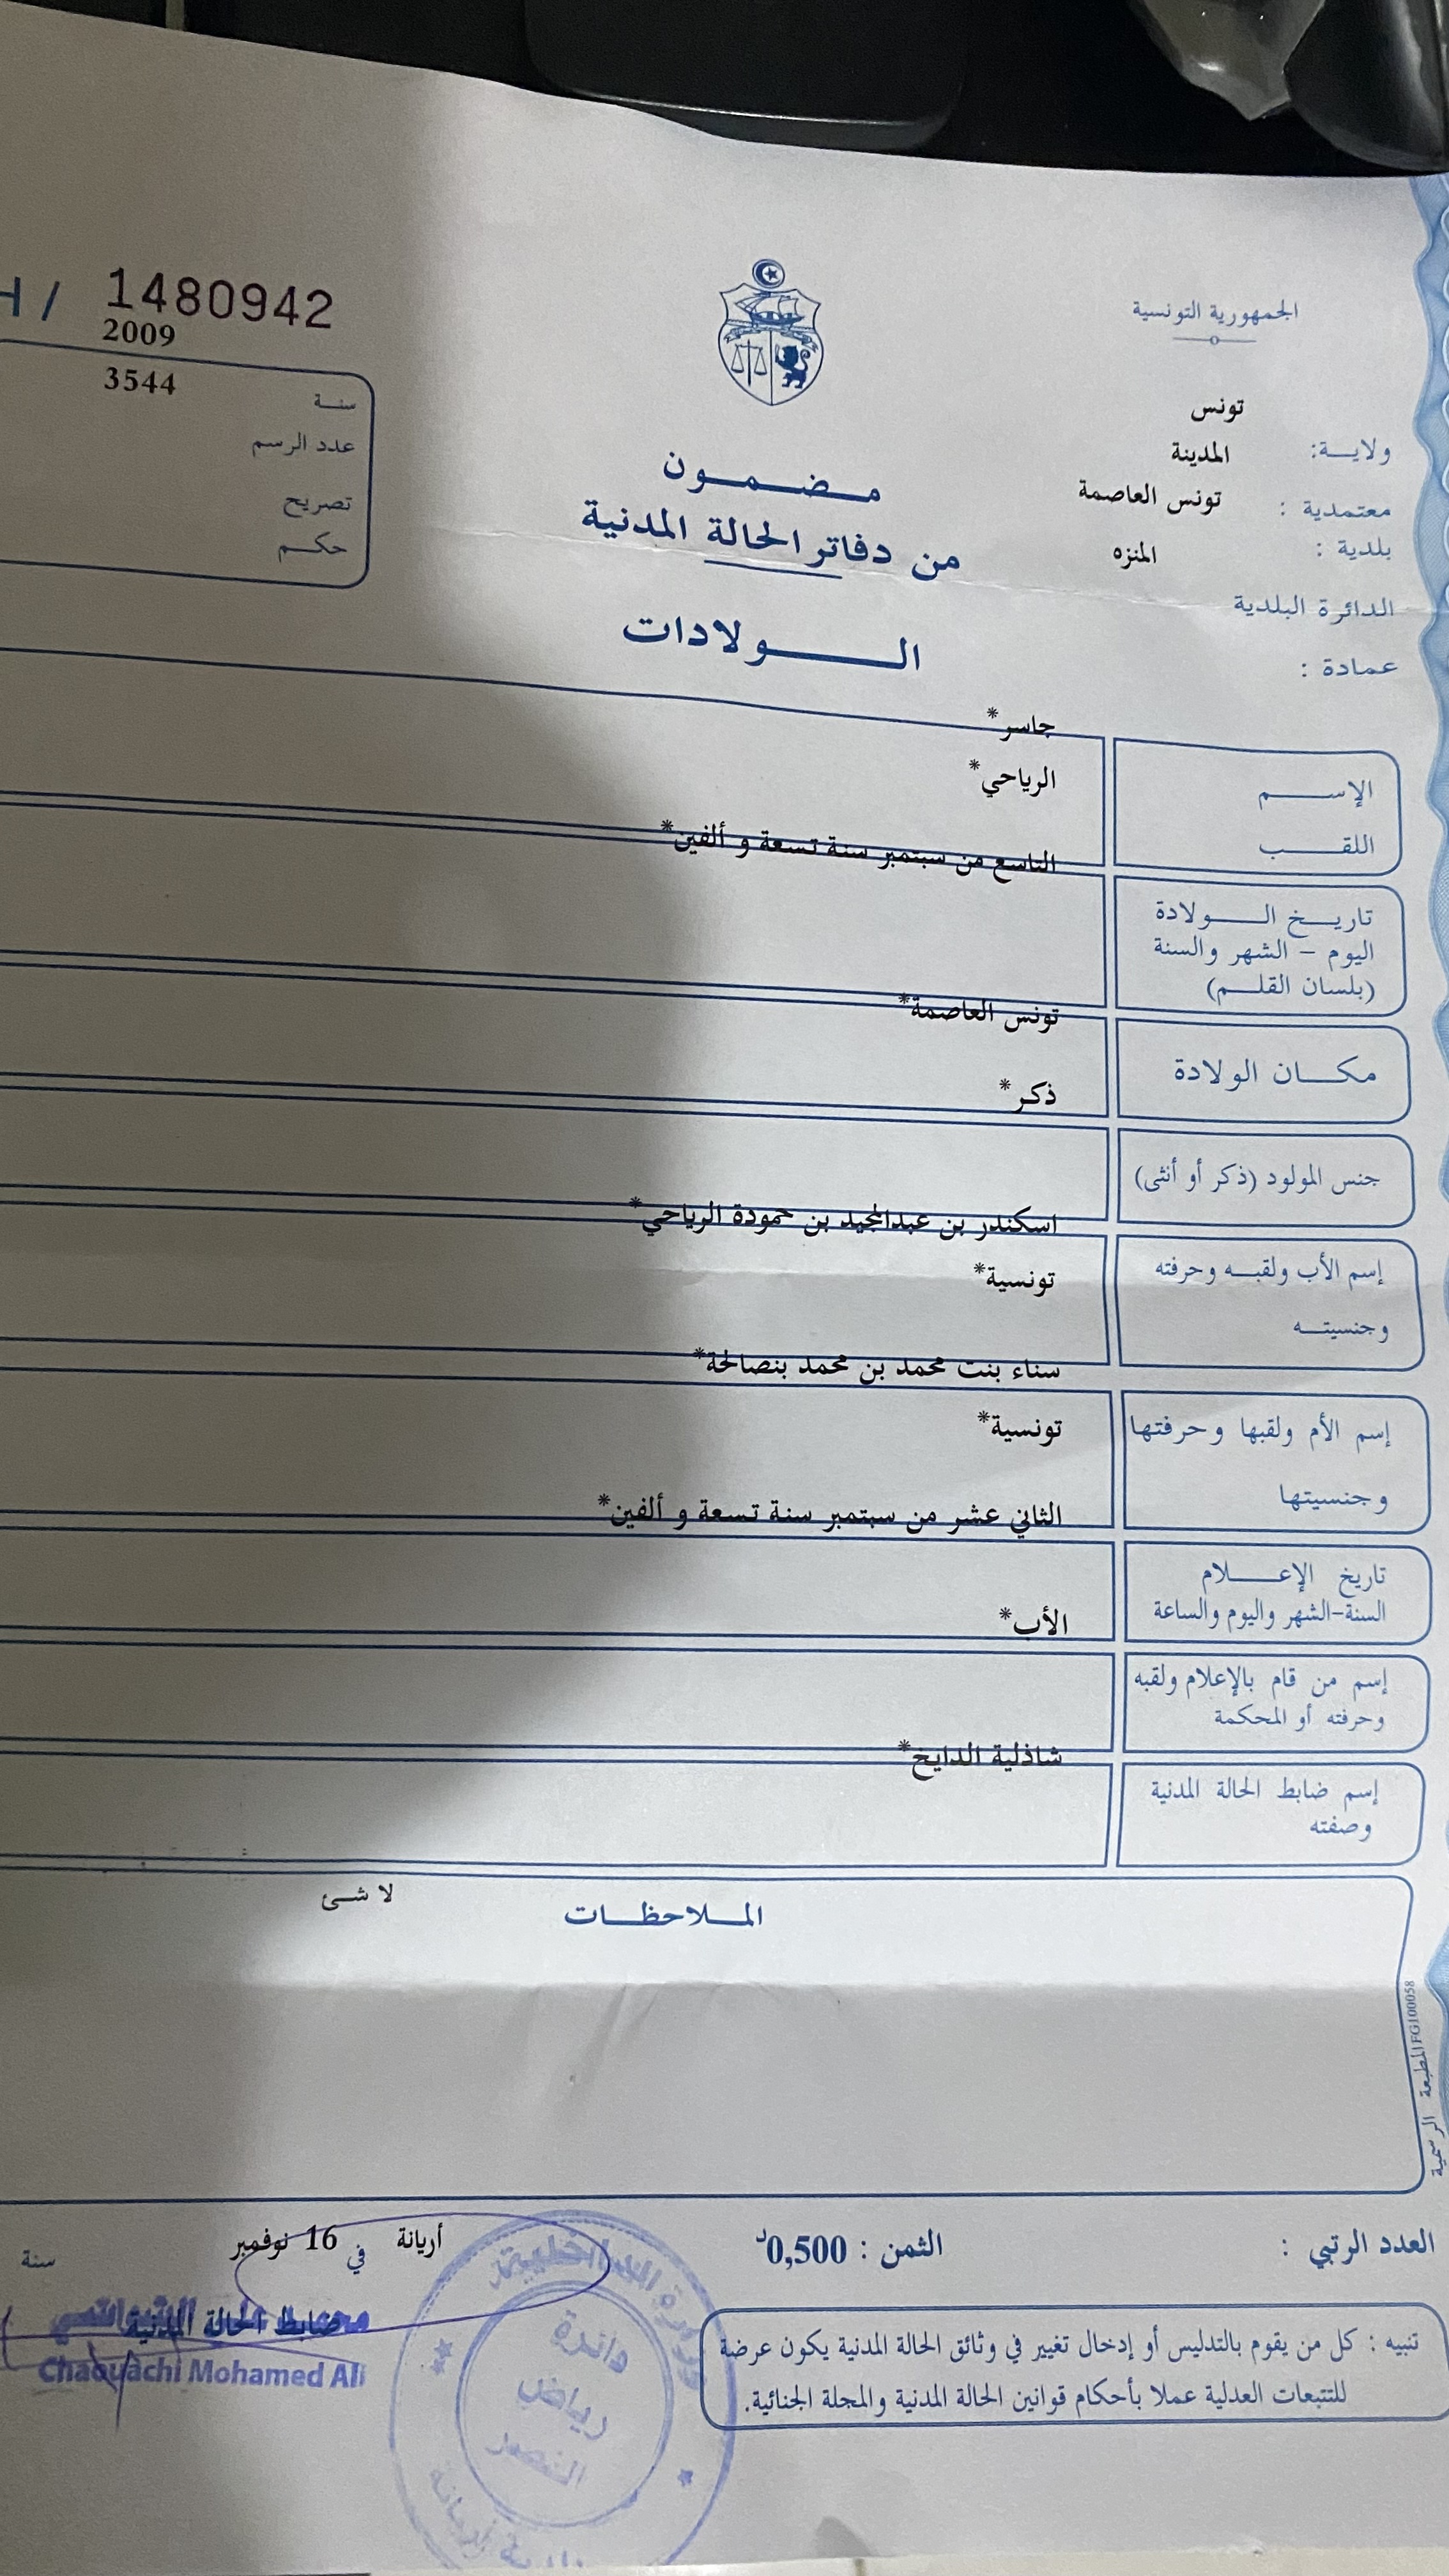 الجمهورية التونسية
H / 1480942
2009
3544
سنـة
عدد الرسم
تصريح
حكـم
تونس
ولايـــة:
المدينة
معتمدية :
تونس العاصمة
بلدية :
المنزه
الدائرة البلدية
عمادة :
مـضـمـون
من دفاتر الحالة المدنية
الـولادات
جاسر*
الإســـم
الرياحي*
اللقـــب
التاسع من سبتمبر سنة تسعة و ألفين*
تاريــخ الـــولادة
اليوم – الشهر والسنة
(بلسان القلــم)
تونس العاصمة*
مكـــان الولادة
ذكر*
جنس المولود (ذكر أو أنثى)
اسكندر بن عبدالمجيد بن حمودة الرياحي*
إسم الأب ولقبــه وحرفته
تونسية*
وجنسيتــه
سناء بنت محمد بن محمد بنصالحة*
إسم الأم ولقبها وحرفتها
تونسية*
وجنسيتها
الثاني عشر من سبتمبر سنة تسعة و ألفين*
تاريخ الإعــــلام
السنة-الشهر واليوم والساعة
الأب*
إسم من قام بالإعلام ولقبه
وحرفته أو المحكمة
شاذلية الدايخ*
إسم ضابط الحالة المدنية
وصفته
الملاحظات
لا شئ
المطبعة الرسمية FG100058
العدد الرتبي :
الثمن : 0,500د
أريانة في 16 نوفمبر سنة
ضابط الحالة المدنية
Chaouachi Mohamed Ali
وزارة الداخلية
دائرة
رياض
النصر
تنبيه : كل من يقوم بالتدليس أو إدخال تغيير في وثائق الحالة المدنية يكون عرضة
للتتبعات العدلية عملا بأحكام قوانين الحالة المدنية والمجلة الجنائية.